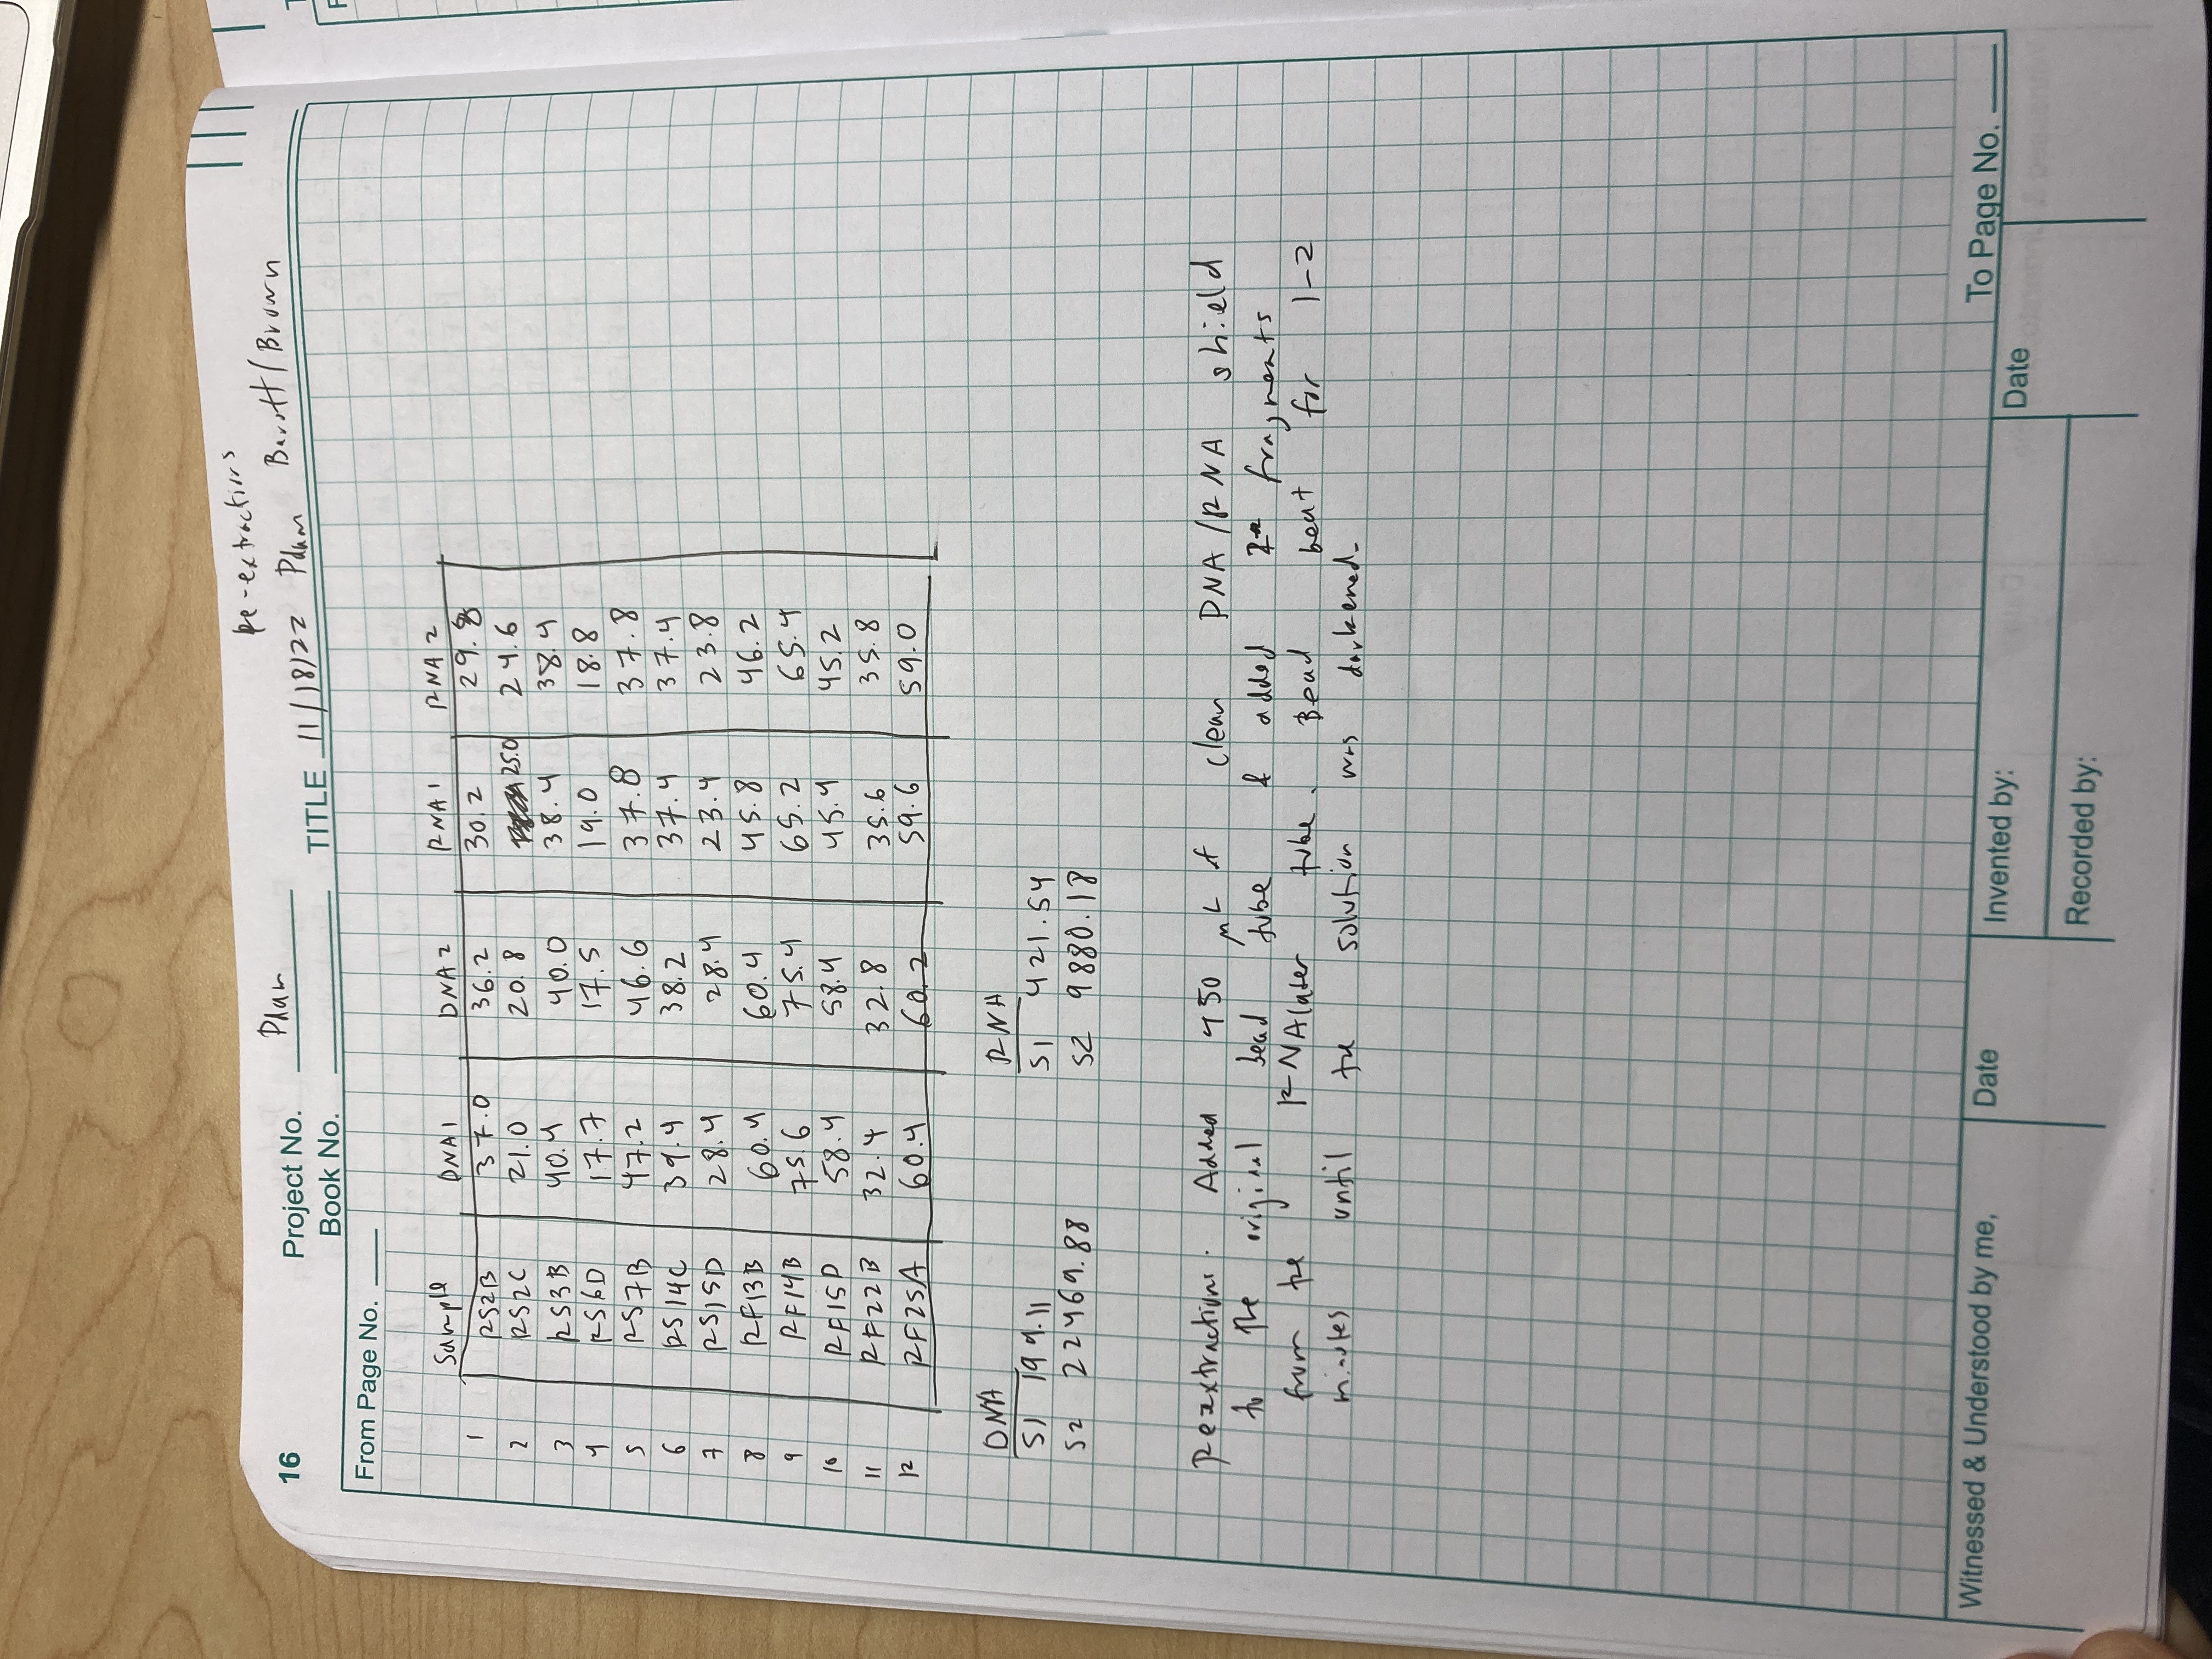 Re-extractions
16 Project No. Pdam
Book No. TITLE 11/18/22 Pdam Barott/Brown
From Page No.
Sample DNA1 DNA2 RNA1 RNA2
1 RS2B 37.0 36.2 30.2 29.8
2 RS2C 21.0 20.8 25.0 24.6
3 RS3B 40.4 40.0 38.4 38.4
4 RS6D 17.7 17.5 19.0 18.8
5 RS7B 47.2 46.6 37.8 37.8
6 RS14C 39.4 38.2 37.4 37.4
7 RS15D 28.4 28.4 23.4 23.8
8 RF13B 60.4 60.4 45.8 46.2
9 RF14B 75.6 75.4 65.2 65.4
10 RF15D 58.4 58.4 45.4 45.2
11 RF22B 32.4 32.8 35.6 35.8
12 RF25A 60.4 60.2 59.6 59.0
DNA RNA
S1 199.11 S1 421.54
S2 22469.88 S2 9880.18
Reextractions. Added 450 μL of clean DNA/RNA shield
to the original bead tube & added fragments
from the RNAlater tube. Bead beat for 1-2
minutes until the solution was darkened.
To Page No.
Witnessed & Understood by me, Date Invented by: Date
Recorded by: